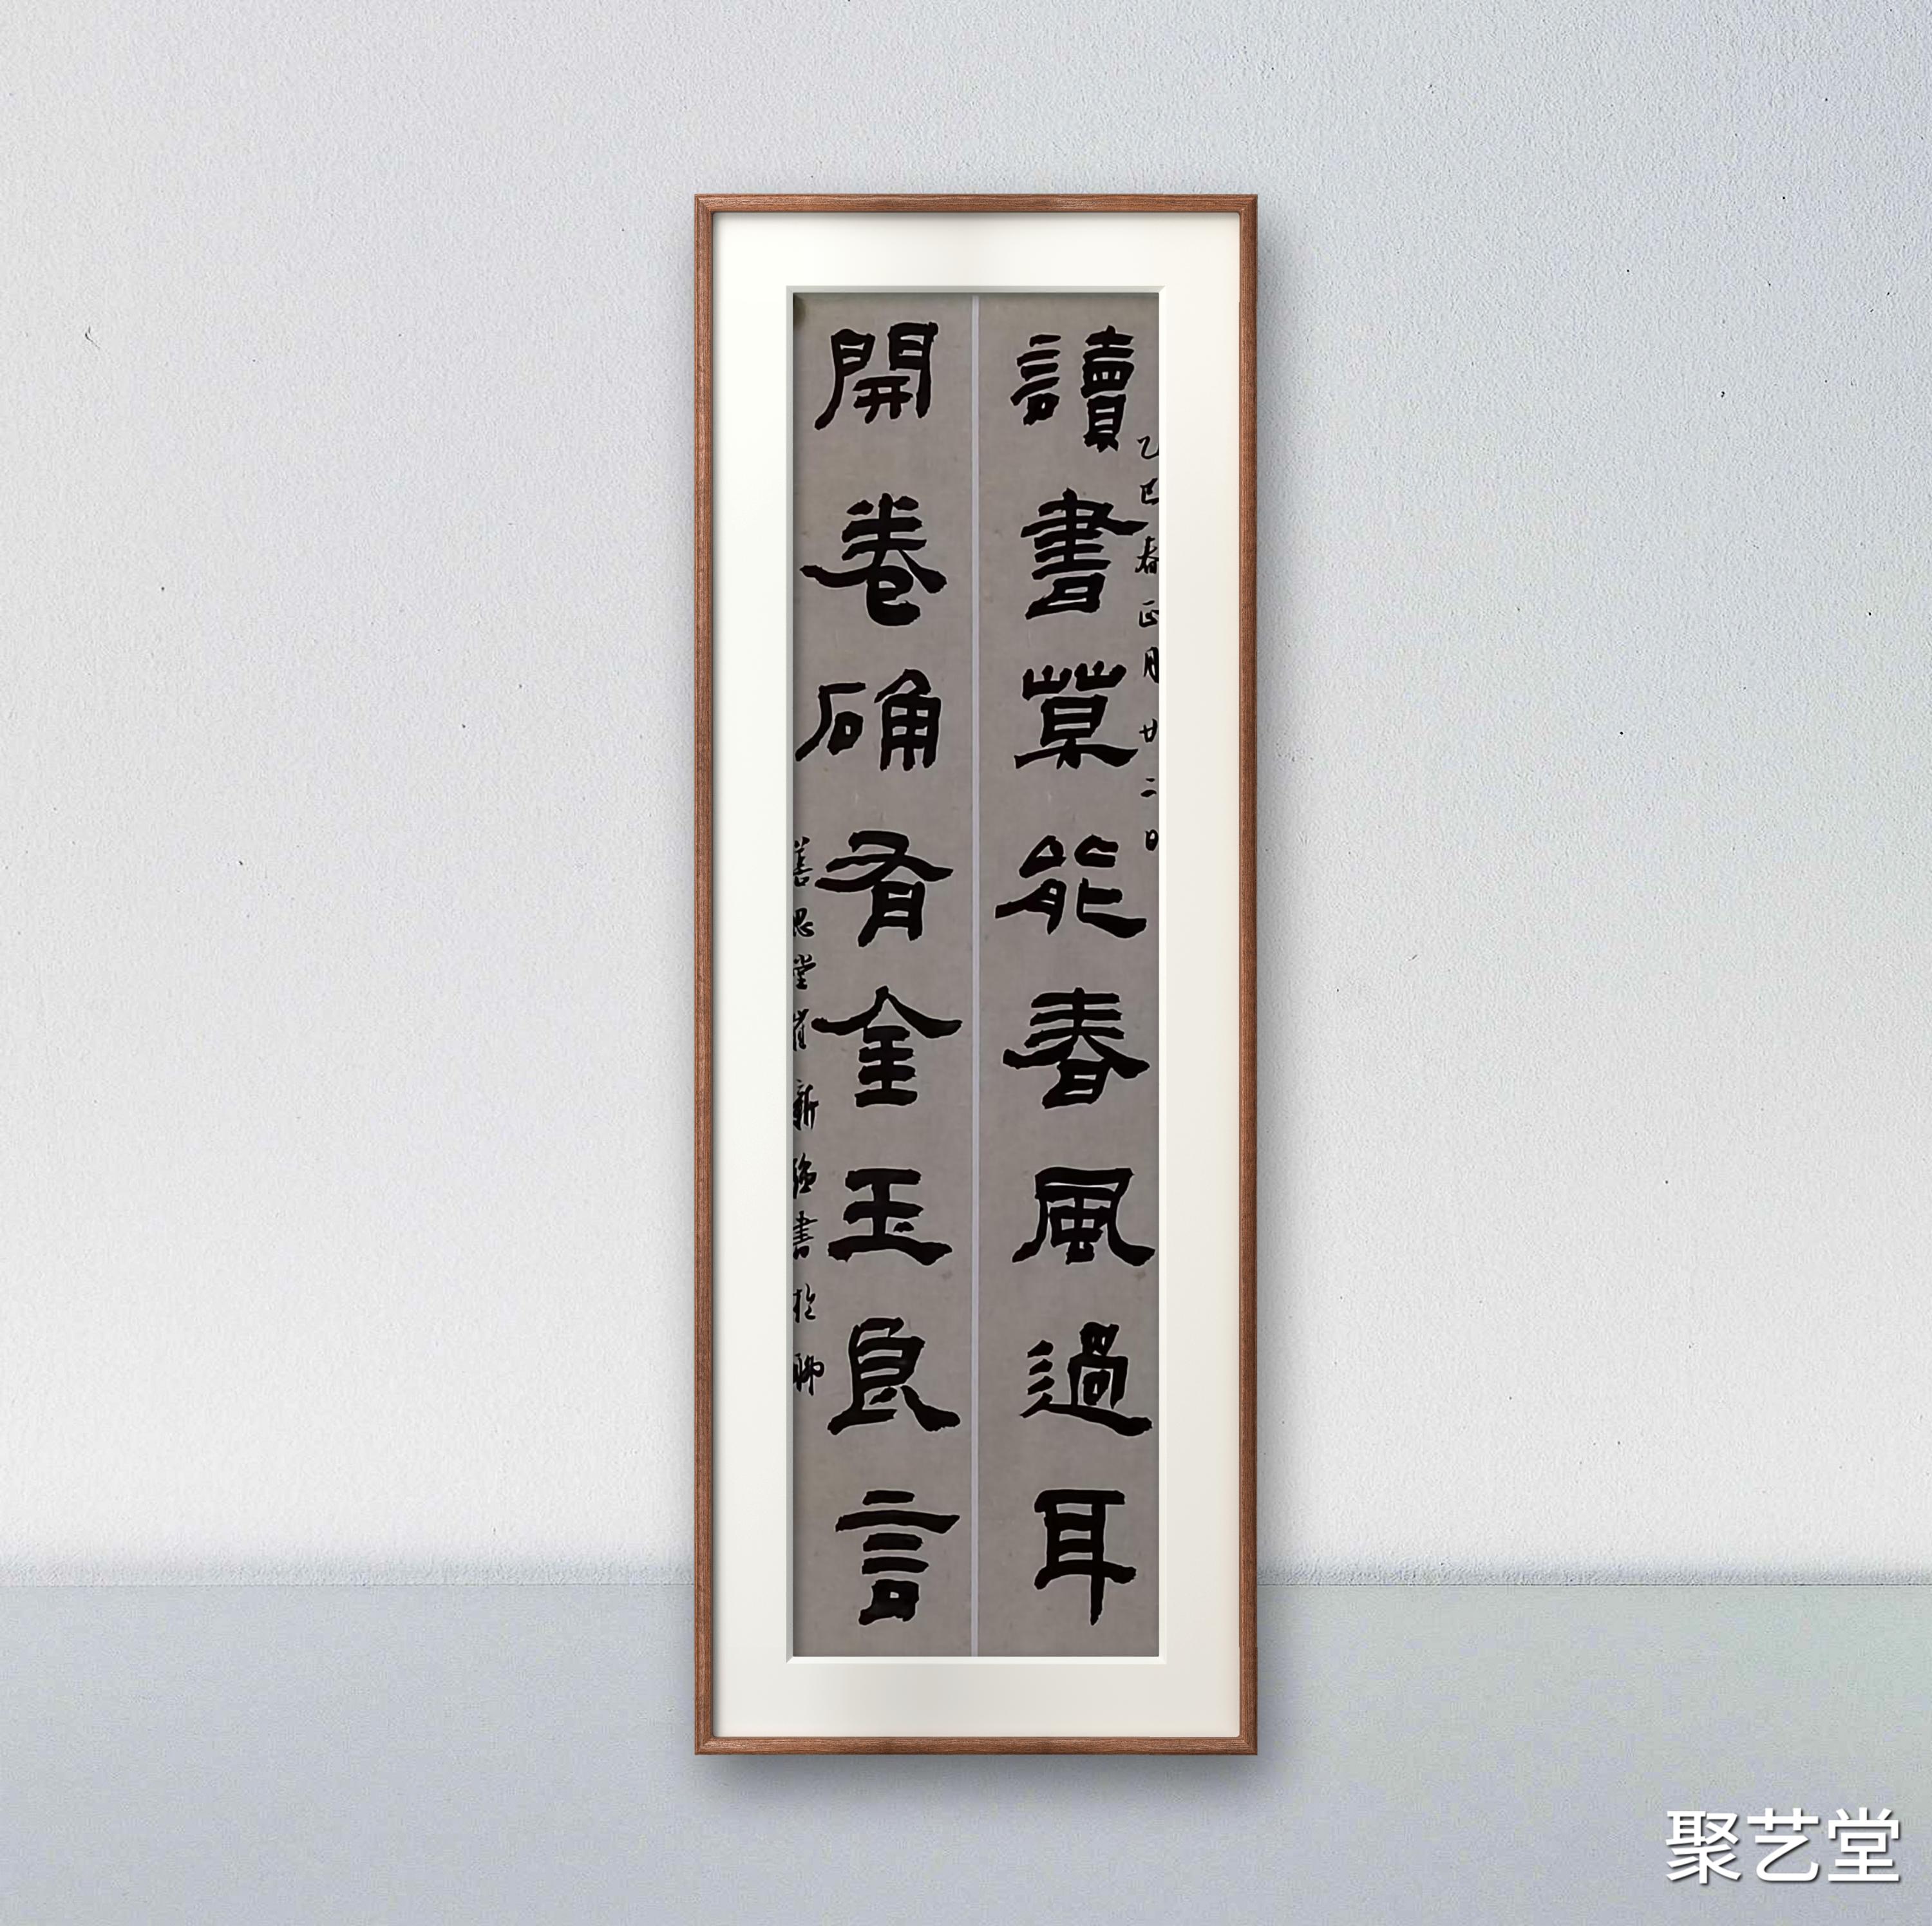 乙巳春正月廿二日
讀書菓能春風過耳
開卷确有金玉良言
善思堂崔新強書於聊
聚艺堂